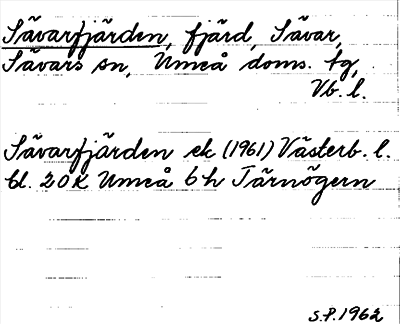 Sävarfjärden, fjärd, Sävar,
Sävars sn, Umeå doms. tg,
Vb. l.
Sävarfjärden ek (1961) Västerb. l.
bl. 20K Umeå 6h Tärnögern
S.P. 1962